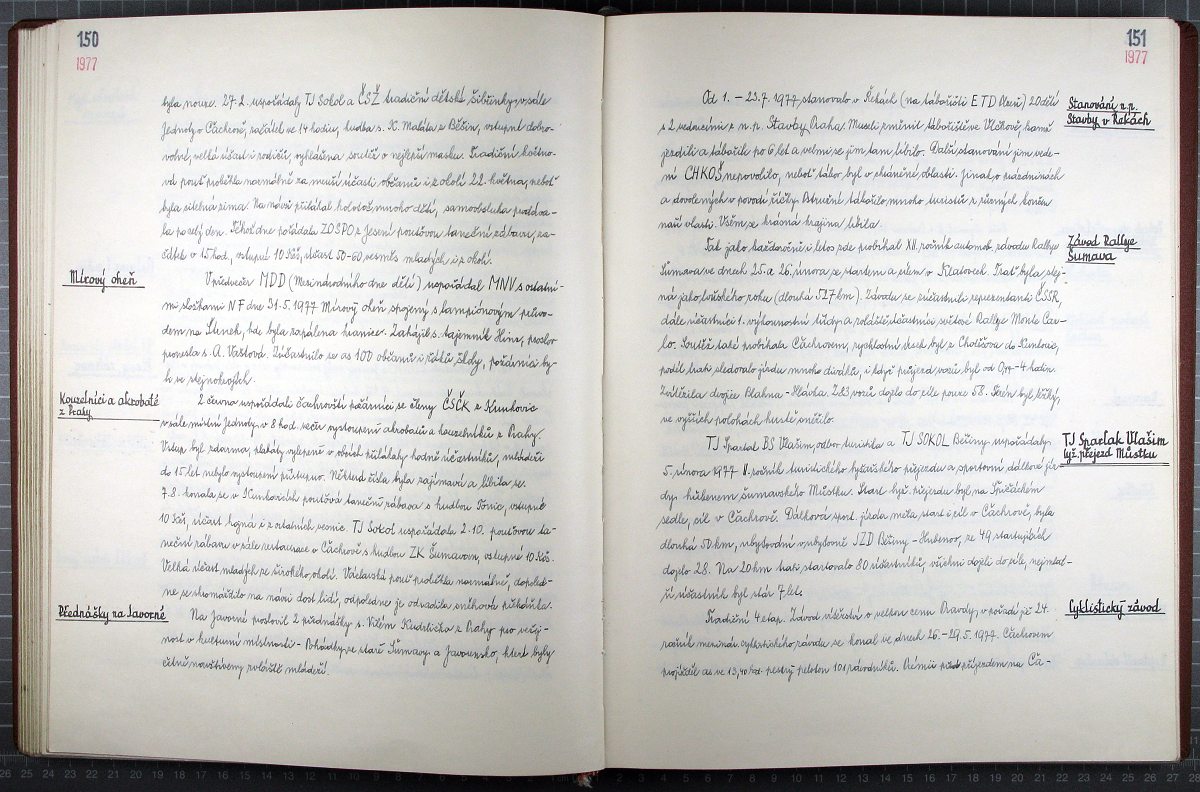 150
1977
byla nouze. 27.2. uspořádaly TJ Sokol a ČSŽ tradiční dětské šibřinky v sále
Jednoty v Čachrově, začátek ve 14 hodin, hudba s. K. Mataše z Běšin, vstupné dobro-
volné, velká účast i rodičů, vyhlášena soutěž o nejlepší masku. Tradiční květno-
vá pouť proběhla normálně za menší účasti občanů i z okolí 22. května, neboť
byla citelná zima. Na návsi přilákal kolotoč mnoho dětí, samoobsluha prodáva-
la po celý den. Téhož dne pořádala ZO SPO z Jesení pouťovou taneční zábavu, za-
čátek v 15 hod., vstupné 10 Kčs, účast 50-60 vesměs mladých i z okolí.
Mírový oheň
V předvečer MDD (Mezinárodního dne dětí) uspořádal MNV s ostatní-
mi složkami NF dne 31.5.1977 Mírový oheň spojený s lampiónovým průvo-
dem na Štinek, kde byla zapálena hranice. Zahájil s. tajemník Hině, proslov
pronesla s. A. Vaštová. Zúčastnilo se as 100 občanů i žáků školy, požárníci by-
li ve stejnokrojích.
Kouzelníci a akrobaté
z Prahy
2. června uspořádali čachrovští požárníci se členy ČSČK z Kunkovic
v sále místní Jednoty v 8 hod. večer vystoupení akrobatů a kouzelníků z Prahy.
Vstup byl zdarma, plakáty vylepené v obcích přilákaly hodně účastníků, mládeži
do 15 let nebylo vystoupení přístupno. Některá čísla byla zajímavá a líbila se.
7.8. konala se v Kunkovicích pouťová taneční zábava s hudbou Tonic, vstupné
10 Kčs, účast hojná i z ostatních vesnic. TJ Sokol uspořádala 2.10. pouťovou ta-
neční zábavu v sále restaurace v Čachrově s hudbou ZK Šumavan, vstupné 10 Kčs.
Velká účast mladých ze širokého okolí. Václavská pouť proběhla normálně, dopoled-
ne se shromáždilo na návsi dost lidí, odpoledne je odvadila sněhová přeháňka.
Přednášky na Javorné
Na Javorné proslovil 2 přednášky s. Vilém Kudrlička z Prahy pro veřej-
nost v kulturní místnosti - Pohádky ze staré Šumavy a Javorensko, které byly
četně navštíveny zvláště mládeží.
151
1977
Od 1. - 23.7. 1977 stanovalo v Řekách (na tábořišti ETD Plzeň) 20 dětí
s 2 vedoucími z n.p. Stavby Praha. Museli změnit tábořiště ve Vlčkově, kamž
jezdili a tábořili po 6 let a velmi se jim tam líbilo. Další stanování jim vede-
ní CHKOŠ nepovolilo, neboť tábor byl v chráněné oblasti. Jinak o prázdninách
a dovolených v povodí říčky Ostružné tábořilo mnoho turistů z různých končin
naší vlasti. Všem se krásná krajina líbila.
Stanování n.p.
Stavby v Řekách
Tak jako každoročně, i letos zde probíhal XII. ročník automob. závodu Rallye
Šumava ve dnech 25. a 26. února se startem a cílem v Klatovech. Trať byla stej-
ná jako loňského roku (dlouhá 527 km). Závodu se zúčastnili reprezentanti ČSSR,
dále účastníci 1. výkonnostní třídy a zvláště účastníci světové Rallye Monte Car-
lo. Soutěž také probíhala Čachrovem, rychlostní úsek byl z Chodčova do Kunkovic,
podél trati sledovalo jízdu mnoho diváků, i když průjezd vozů byl od 0,00 - 4 hodin.
Zvítězila dvojice Blahna - Hlávka. Z 83 vozů dojelo do cíle pouze 58. Terén byl těžký,
ve vyšších polohách hustě sněžilo.
Závod Rallye
Šumava
TJ Spartak BS Vlašim, odbor turistika a TJ SOKOL Běšiny uspořádaly
5. února 1977 8. ročník turistického lyžařského přejezdu a sportovní dálkové jíz-
dy hřebenem šumavského Můstku. Start lyž. přejezdu byl na Špičáckém
sedle, cíl v Čachrově. Dálková sport. jízda měla start i cíl v Čachrově, byla
dlouhá 50 km, ubytování v ubytovně JZD Běšiny - Hubenov, ze 49 startujících
dojelo 28. Na 20 km trati startovalo 80 účastníků, všichni dojeli do cíle, nejmlad-
ší účastník byl stár 7 let.
TJ Spartak Vlašim
lyž. přejezd Můstku
Tradiční 4 etap. Závod vítězství o velkou cenu Pravdy, v pořadí již 24.
ročník mezinár. cyklistického závodu se konal ve dnech 26. - 29.5. 1977. Čachrovem
projížděl as ve 13,40 hod. pestrý peloton 101 závodníků. Prémii před příjezdem na Ča-
Cyklistický závod